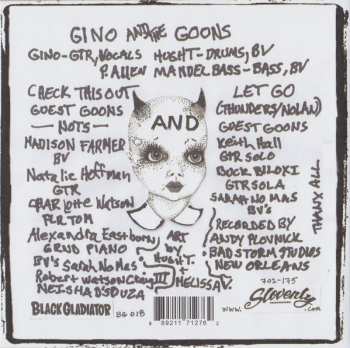 GINO AND THE GOONS
GINO-GTR, VOCALS HUGHT-DRUMS, BV
P. ALLEN MANDEL BASS-BASS, BV
CHECK THIS OUT
GUEST GOONS
-NOTS-
MADISON FARMER
BV
Natalie Hoffman
GTR
CHARLOTTE WATSON
FLR TOM
Alexandra Eastburn
GRND PIANO
BV's Sarah No Mas
Robert Watson Craig III
MEISHA D'SOUZA
AND
ART
by
HUGHT.
+
MELISSA V.
LET GO
(THUNDERS/NOLAN)
GUEST GOONS
Keith Hall
GTR SOLO
BUCK BILOXI
GTR SOLA
SARAH NO MAS
BV's
RECORDED BY
ANDY PLOVNICK
BAD STORM STUDIOS
NEW ORLEANS
THANX ALL
BLACK GLADIATOR
BG 018
8 89211 71276 2
702-175
www.Slovenly.com